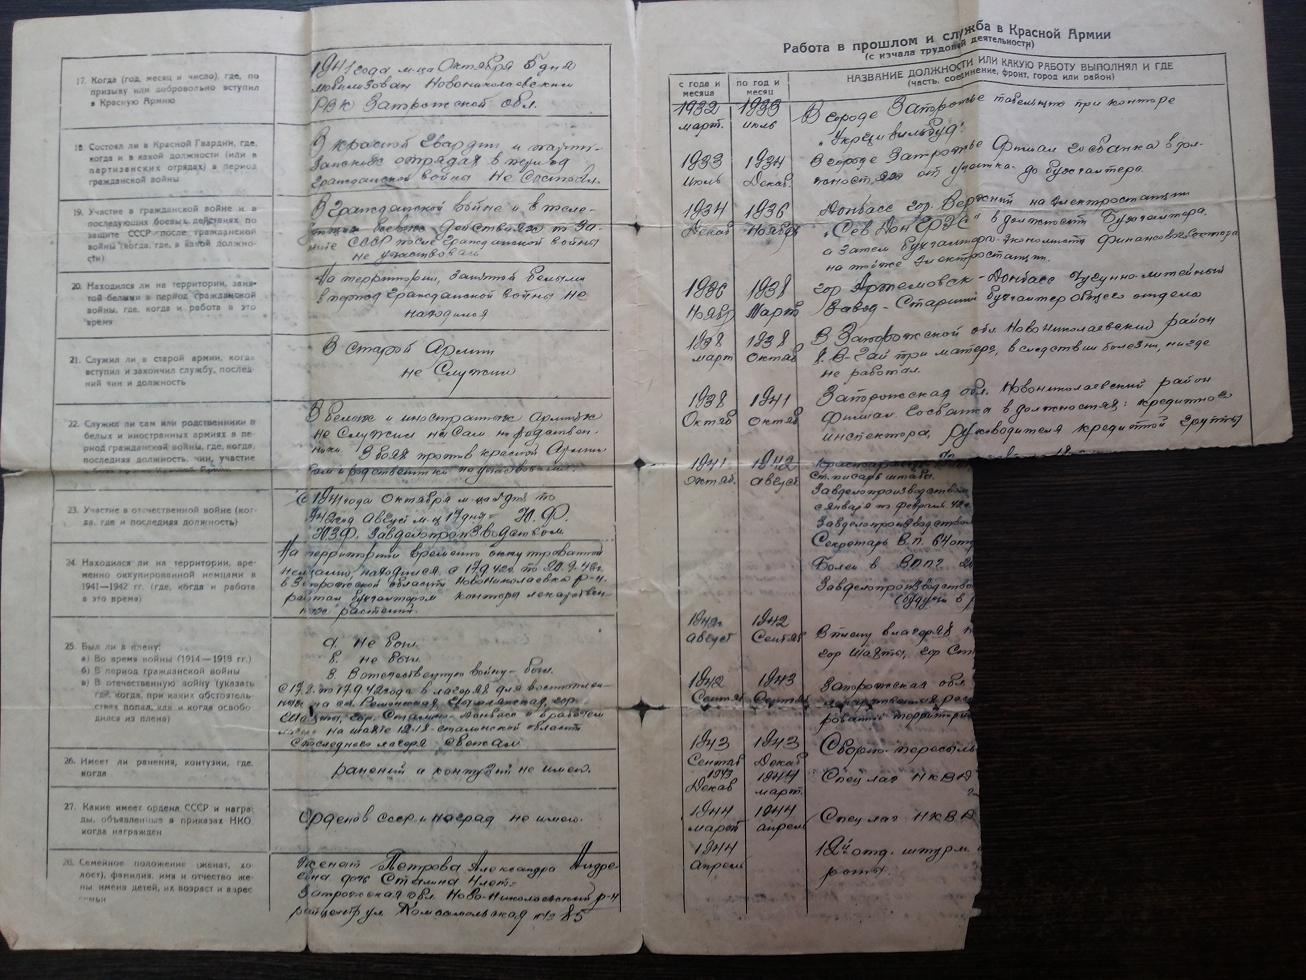 17. Когда (год, месяц и число), где, по
призыву или добровольно вступил
в Красную Армию
1941 года м-ца Октября 5 дня
мобилизован Новониколаевским
РВК Запорожской обл.
18. Состоял ли в Красной Гвардии, где,
когда и в какой должности (или в
партизанских отрядах) в период
гражданской войны
В красной Гвардии и парти-
занских отрядах в период
Гражданской война не состоял.
19. Участие в гражданской войне и в
последующих боевых действиях по
защите СССР после гражданской
войны (когда, где, в какой должно-
сти)
В Гражданской войне и в
боевых действиях по за-
щите СССР после гражданской войны
не участвовал
20. Находился ли на территории, заня-
той белыми в период гражданской
войны, где, когда и работа в это
время
На территории, занятой белыми
в период гражданской войны не
находился
21. Служил ли в старой армии, когда
вступил и закончил службу, послед-
ний чин и должность
В старой Армии
не служил
22. Служил ли сам или родственники в
белых и иностранных армиях в пе-
риод гражданской войны, где, когда,
последняя должность, чин, участие
В белых и иностранных армиях
не служил ни сам, ни родствен-
ники. В боях против красной Армии
сам и родственники не участвовали.
23. Участие в отечественной войне (ког-
да, где и последняя должность)
С 1941 года Октября м-ца
Август м-ц 17 дня - Ю.Ф.
Ю.З.Ф. Завделопроизводством
24. Находился ли на территории, вре-
менно оккупированной немцами в
1941—1942 гг. (где, когда и работа
в это время)
На территории временно оккупированной
немцами, находился с
в Запорожской области Новониколаевка р-н.
работал бухгалтером конторы лекарствен-
ных растений.
25. Был ли в плену:
а) Во время войны (1914—1918 гг.)
б) В период гражданской войны
в) В отечественную войну (указать
где, когда, при каких обстоятель-
ствах попал, как и когда освобо-
дился из плена)
а. Не был.
б. не был.
в. В отечественную войну - был.
в лагерях для военноплен-
Шахты, гор. Сталино - Донбасс и в рабочем
на шахте 12-18 - сталинской области
С последнего лагеря сбежал
26. Имеет ли ранения, контузии, где,
когда
ранений и контузий не имею.
27. Какие имеет ордена СССР и награ-
ды, объявленные в приказах НКО,
когда награжден
Орденов СССР и наград не имею.
28. Семейное положение (женат, хо-
лост), фамилия, имя и отчество же-
ны имена детей, их возраст и адрес
семьи
Женат Петрова Александра Андре-
евна дочь Сталина 4 лет-
Запорожская обл. Ново-Николаевский р-н
райцентр ул Комсомольская № 85
Работа в прошлом и служба в Красной Армии
(с начала трудовой деятельности)
с года и
месяца
по год и
месяц
НАЗВАНИЕ ДОЛЖНОСТИ ИЛИ КАКУЮ РАБОТУ ВЫПОЛНЯЛ И ГДЕ
(часть, соединение, фронт, город или район)
1932 1933 В городе Запорожье табельщик при конторе
март. июль
1933 1934 В городе Запорожье Филиал Госбанка в дол-
Июль Декаб. жностях от ученика до бухгалтера.
1934 1936 Донбасс гор. Верхний на электростанции
Декаб Ноября "СевДонГРЭС" в должности бухгалтера.
а затем бухгалтера-экономиста финансового сектора
на той же электростанции.
1936 1938 гор Артемовск - Донбасс Чугунно-литейный
Ноябр Март Завод - Старший бухгалтер общего отдела
1938 1938 В Запорожской обл. Новониколаевский район
март октяб при матере, в следствии болезни, нигде
не работал.
1938 1941 Запорожская обл. Новониколаевский район
Октяб октяб Филиал Госбанка в должностях: кредитного
инспектора, руководителя кредитной группы
1941. 1942
октяб. август Ст. писарь штаба.
Завделопроизводств
с января по февраль
Завделопроизводством
Секретарь В.П. 64 отд
Болел в
Завделопроизводство
(будучи в
1942 1942 В плену в лагерях
август Сентяб гор Шахты, гор Ст
1942 1943 Запорожская обл.
Сентяб
территори
1943 1943 Сборно-пересыль
Сентяб Декаб
1943 1944 Спец лаг НКВД
Декаб март.
1944 1944 Спец лаг НКВД
март апрель
1944 12й отд. штурм.
апрель роты